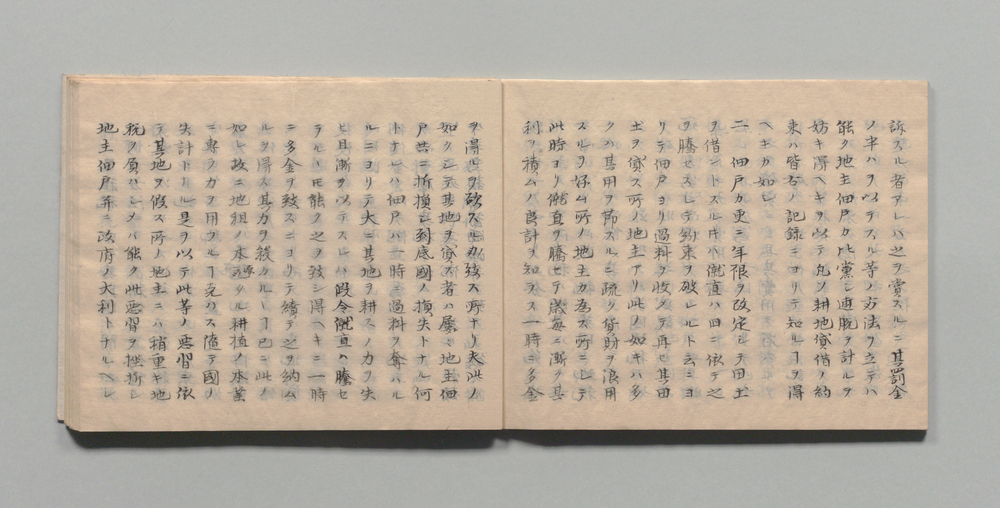 訴スル者アレハ之ヲ賞スルニ其罰金
ノ半ハヲ以テスル等ノ方法ヲ立テハ
能ク地主佃戸カ比黨シ連脱ヲ計ルヲ
妨キ得ヘキヲ以テ凡ソ耕地貸借ノ約
束ハ皆ナ記録ニヨリテ知ルヿヲ得
ヘキカ如シ
二 佃戸カ更ニ年限ヲ改定シテ田土
ヲ借ントスルキハ僦直ハ四ニ依テ之
ヲ騰セスレテ約束ヲ破レルト云ニヨ
リテ佃戸ヨリ過料ヲ收メテ再ヒ其田
土ヲ貸ス所ノ地主アリ此ノ如キハ多
クハ其用ヲ節スルニ疏ク貨財ヲ浪用
スルヲ好ム所ノ地主カ為ス所ニレテ
此時ヨリ僦直ヲ騰セテ歳毎ニ漸ク其
利ヲ積ムノ良計ヲ知ラス一時ニ多金
ヲ得ルヲ欲スルカ致ス所ナリ夫此ノ
如クシテ其地ヲ貸ス者ハ屡々地主佃
戸共ニ折損シ到底國ノ損失トナル何
トナレハ佃戸ハ一時ニ過料ヲ奪ハル
ルニヨリテ大ニ其地ヲ耕スノ力ヲ失
ヒ且漸ヲ以テスレハ假令僦直ハ騰セ
ラルヽ𪜈能ク之ヲ致シ得ヘキニ一時
ニ多金ヲ致スニヨリテ續テ之ヲ納ム
ルヲ得ス其力ヲ殺カルヽヿ已ニ此ノ
如シ故ニ地租ノ本源タル耕植ノ本業
ニ專ラ力ヲ用フルヿ克ハス隨テ國ノ
失計トナル是ヲ以テ此等ノ悪習ニ依
テ其地ヲ假ス所ノ地主ニハ稍重キ地
税ヲ負ハシメバ能ク此悪習ヲ挫折シ
地主佃戸并ニ政府ノ大利トナルヘレ